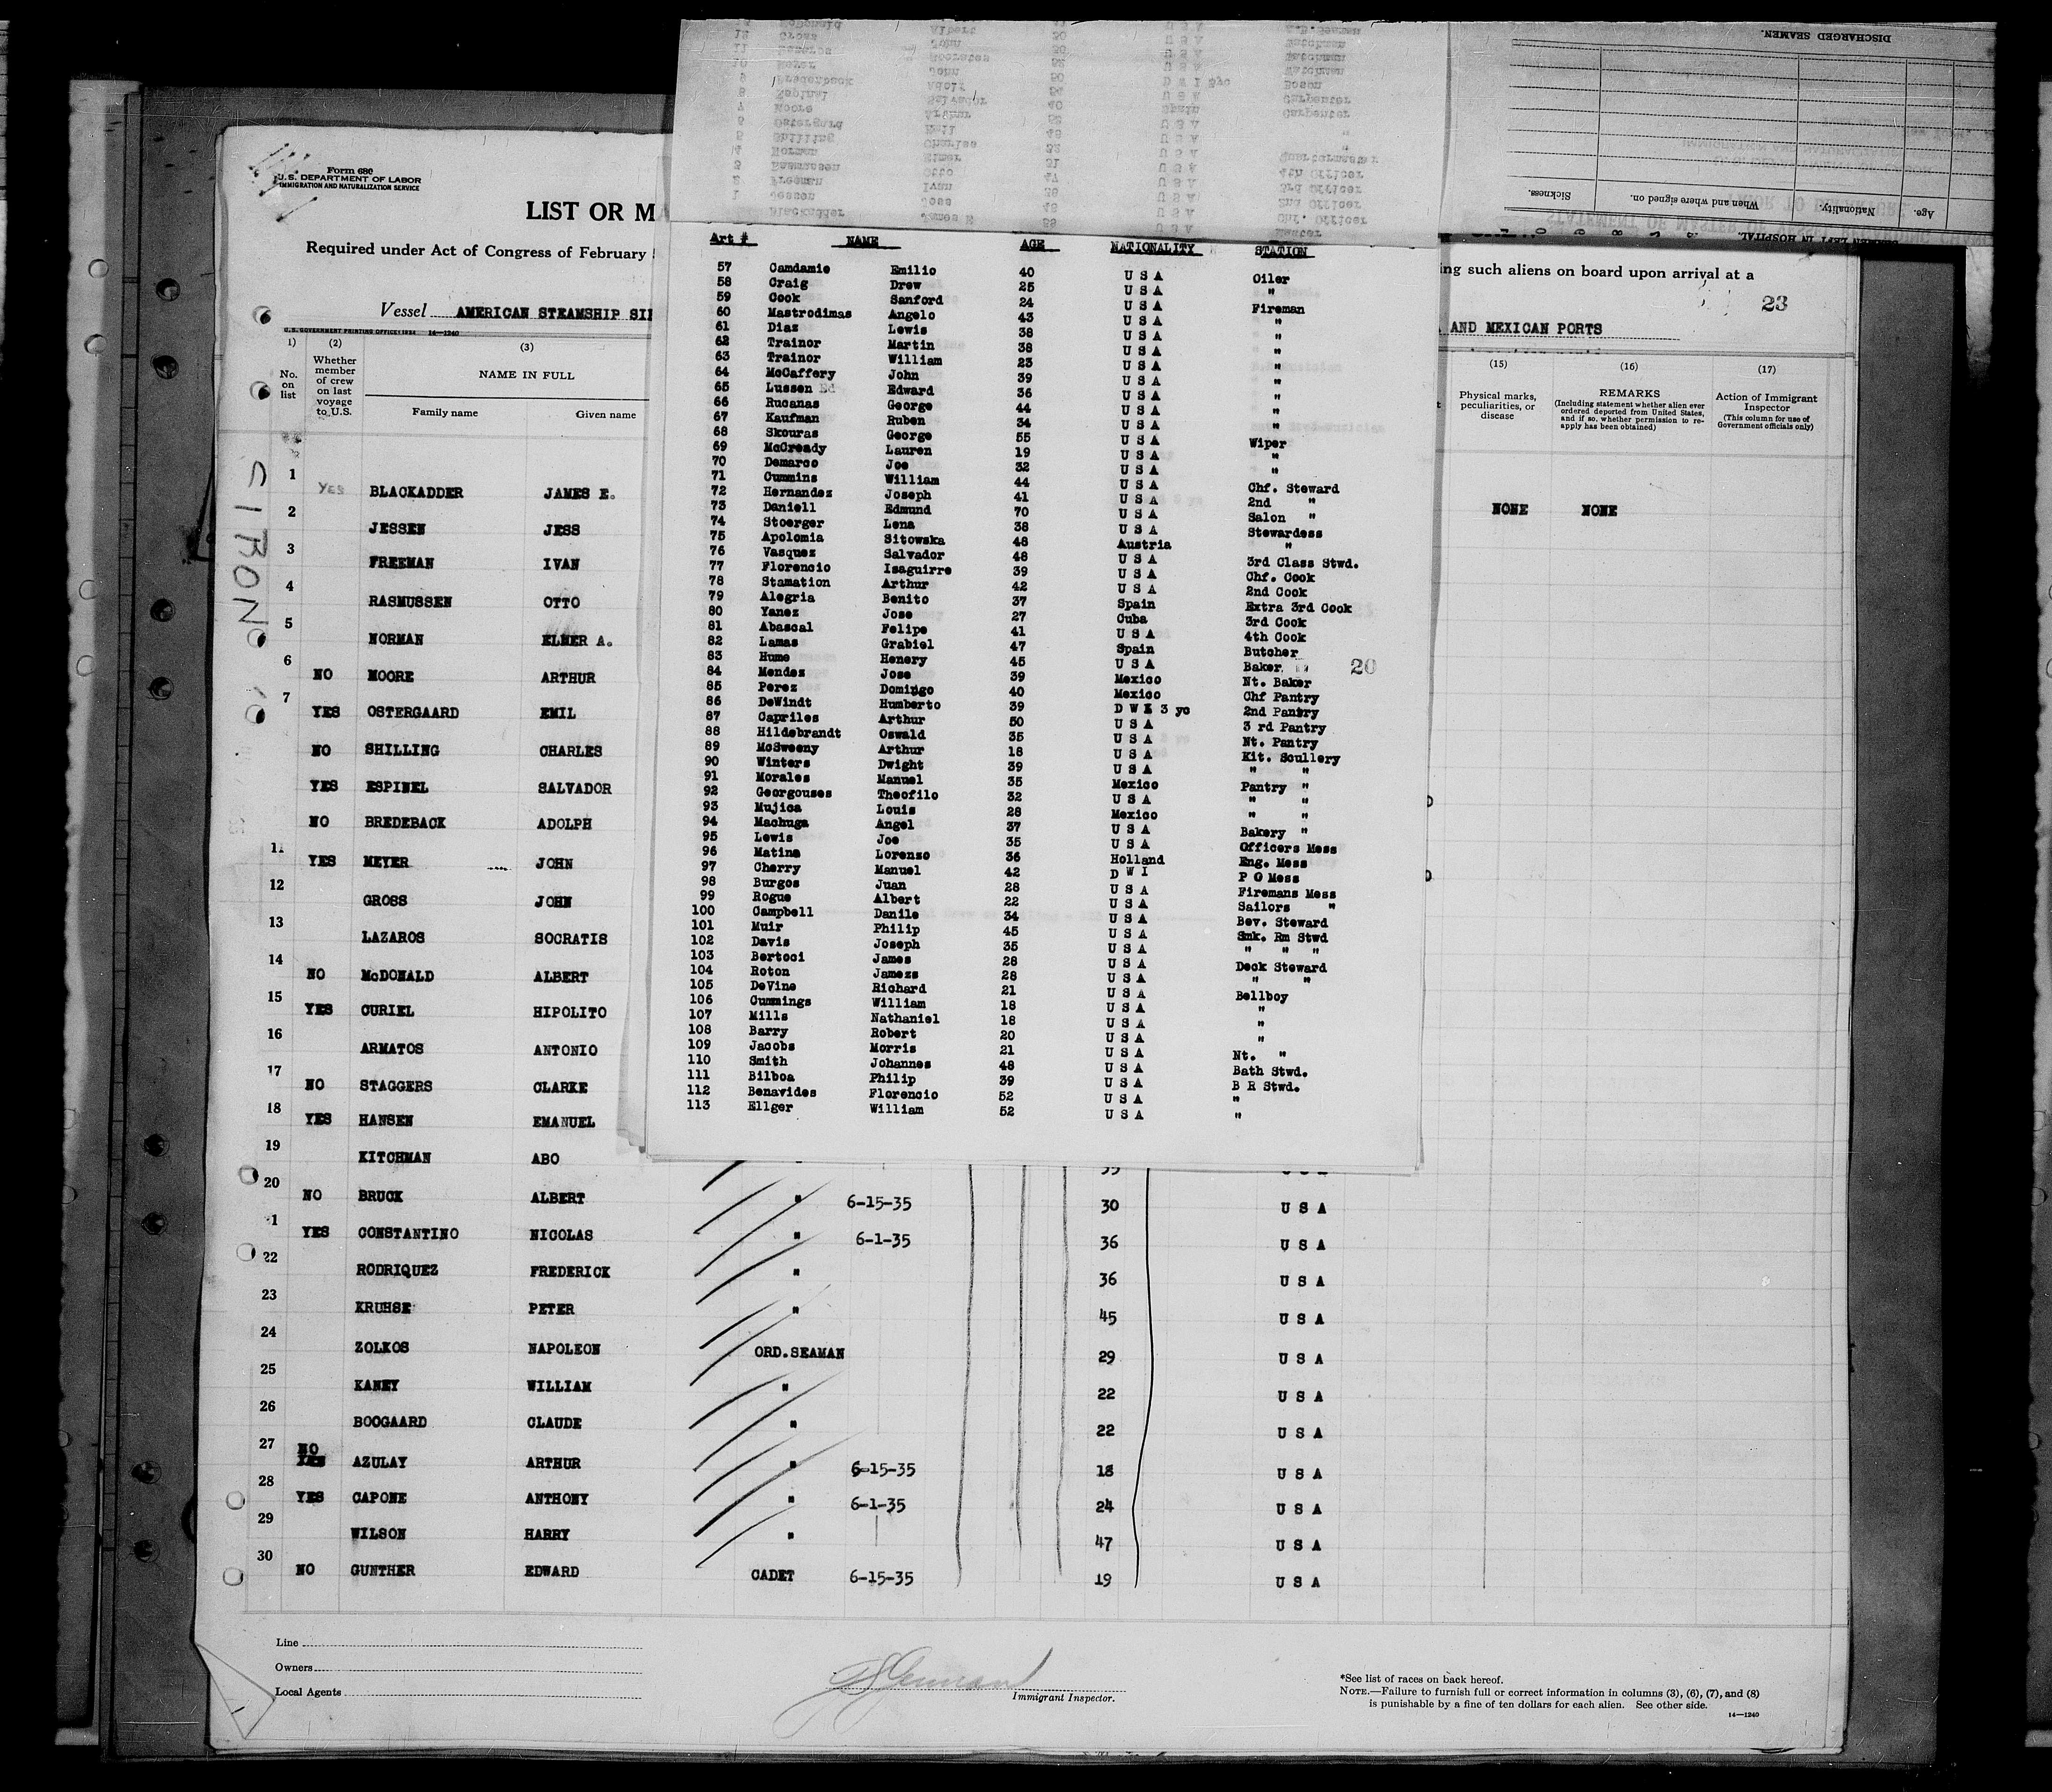 Form 680
U.S. DEPARTMENT OF LABOR
IMMIGRATION AND NATURALIZATION SERVICE
LIST OR M
Required under Act of Congress of February
ing such aliens on board upon arrival at a
23
Vessel AMERICAN STEAMSHIP SI
AND MEXICAN PORTS
U.S. GOVERNMENT PRINTING OFFICE: 1934 14—1240
(2) (3) (15) (16) (17)
No. on list
Whether member of crew on last voyage to U.S.
NAME IN FULL
Family name Given name
Physical marks, peculiarities, or disease
REMARKS
(Including statement whether alien ever ordered deported from United States, and if so, whether permission to re-apply has been obtained)
Action of Immigrant Inspector
(This column for use of Government officials only)
DISCHARGED SEAMEN.
Sickness. When and where signed on. Nationality. Age.
Art # NAME AGE NATIONALITY STATION
57 Camdamie Emilio 40 U S A Oiler
58 Craig Drew 25 U S A "
59 Cook Sanford 24 U S A Fireman
60 Mastrodimas Angelo 43 U S A "
61 Diaz Lewis 38 U S A "
62 Trainor Martin 38 U S A "
63 Trainor William 23 U S A "
64 McCaffery John 39 U S A "
65 Lussen Edward 36 U S A "
66 Rucanas George 44 U S A "
67 Kaufman Ruben 34 U S A "
68 Skouras George 55 U S A Wiper
69 McCready Lauren 19 U S A "
70 Demarco Joe 32 U S A "
71 Cummins William 44 U S A Chf. Steward
72 Hernandez Joseph 41 U S A 2nd "
73 Daniell Edmund 70 U S A Salon "
74 Stoerger Lena 38 U S A Stewardess
75 Apolomia Sitowska 48 Austria "
76 Vasquez Salvador 48 U S A 3rd Class Stwd.
77 Florencio Isaguirre 39 U S A Chf. Cook
78 Stamation Arthur 42 U S A 2nd Cook
79 Alegria Benito 37 Spain Extra 3rd Cook
80 Yanez Jose 27 Cuba 3rd Cook
81 Abascal Felipe 41 U S A 4th Cook
82 Lamas Grabiel 47 Spain Butcher
83 Hume Henery 45 U S A Baker 20
84 Mendez Jose 39 Mexico Nt. Baker
85 Perez Domingo 40 Mexico Chf Pantry
86 DeWindt Humberto 39 D W I 3 yo 2nd Pantry
87 Capriles Arthur 50 U S A 3 rd Pantry
88 Hildebrandt Oswald 35 U S A Nt. Pantry
89 McSweeny Arthur 18 U S A Kit. Scullery
90 Winters Dwight 39 U S A " "
91 Morales Manuel 35 Mexico Pantry "
92 Georgouses Theofilo 32 U S A " "
93 Mujica Louis 28 Mexico " "
94 Machuga Angel 37 U S A Bakery "
95 Lewis Joe 35 U S A Officers Mess
96 Matina Lorenzo 36 Holland Eng. Mess
97 Cherry Manuel 42 D W I P O Mess
98 Burgos Juan 28 U S A Firemans Mess
99 Rogue Albert 22 U S A Sailors "
100 Campbell Danile 34 U S A Bev. Steward
101 Muir Philip 45 U S A Smk. Rm Stwd
102 Davis Joseph 35 U S A " " "
103 Bertoci James 28 U S A Deck Steward
104 Roton Jamezs 28 U S A " "
105 DeVine Richard 21 U S A Bellboy
106 Cummings William 18 U S A "
107 Mills Nathaniel 18 U S A "
108 Barry Robert 20 U S A "
109 Jacobs Morris 21 U S A Nt. "
110 Smith Johannes 48 U S A Bath Stwd.
111 Bilboa Philip 39 U S A B R Stwd.
112 Benavides Florencio 52 U S A "
113 Ellger William 52 U S A "
1 YES BLACKADDER JAMES E. NONE NONE
2 JESSEN JESS
3 FREEMAN IVAN
4 RASMUSSEN OTTO
5 NORMAN ELMER A.
6 NO MOORE ARTHUR
7 YES OSTERGAARD EMIL
NO SHILLING CHARLES
YES ESPINEL SALVADOR
NO BREDEBACK ADOLPH
11 YES MEYER JOHN
12 GROSS JOHN
13 LAZAROS SOCRATIS
14 NO McDONALD ALBERT
15 YES CURIEL HIPOLITO
16 ARMATOS ANTONIO
17 NO STAGGERS CLARKE
18 YES HANSEN EMANUEL
19 KITCHMAN ABO
20 NO BRUCK ALBERT " 6-15-35 30 U S A
1 YES CONSTANTINO NICOLAS " 6-1-35 36 U S A
22 RODRIQUEZ FREDERICK " 36 U S A
23 KRUHSE PETER " 45 U S A
24 ZOLKOS NAPOLEON ORD.SEAMAN 29 U S A
25 KANEY WILLIAM " 22 U S A
26 BOOGAARD CLAUDE " 22 U S A
27 NO YES AZULAY ARTHUR " 6-15-35 18 U S A
28 YES CAPONE ANTHONY " 6-1-35 24 U S A
29 WILSON HARRY " 47 U S A
30 NO GUNTHER EDWARD CADET 6-15-35 19 U S A
Line
Owners
Local Agents
Immigrant Inspector.
*See list of races on back hereof.
NOTE.—Failure to furnish full or correct information in columns (3), (6), (7), and (8)
is punishable by a fine of ten dollars for each alien. See other side.
14—1240